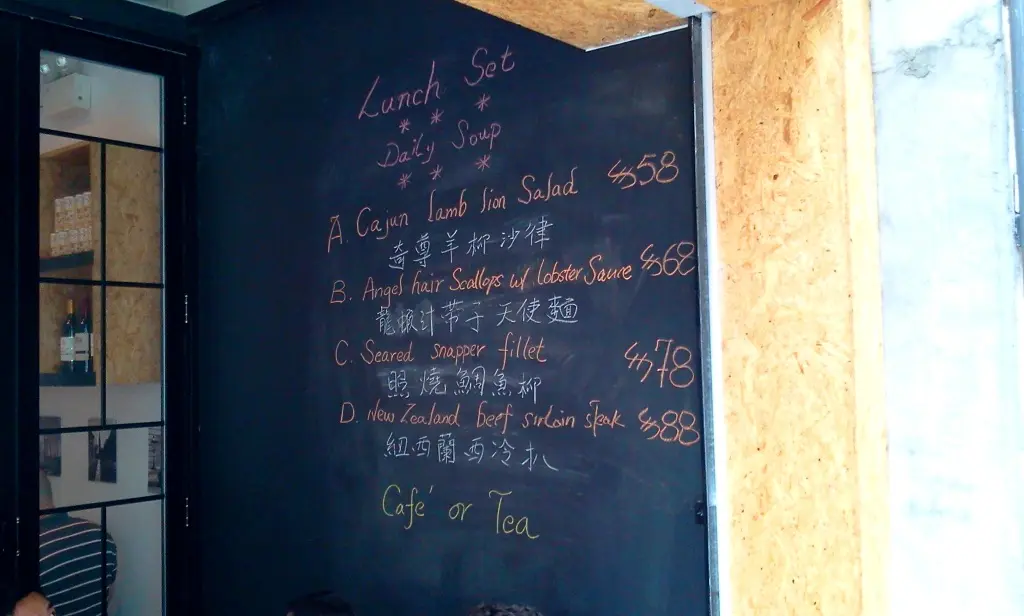 Lunch Set
* * *
Daily Soup
* * *
A. Cajun lamb lion Salad $58
奇尊羊柳沙律
B. Angel hair Scallops w/ lobster Sauce $68
龍蝦汁带子天使麵
C. Seared snapper fillet $78
照燒鯛魚柳
D. New Zealand beef sirloin steak $88
紐西蘭西冷扒
Café or Tea